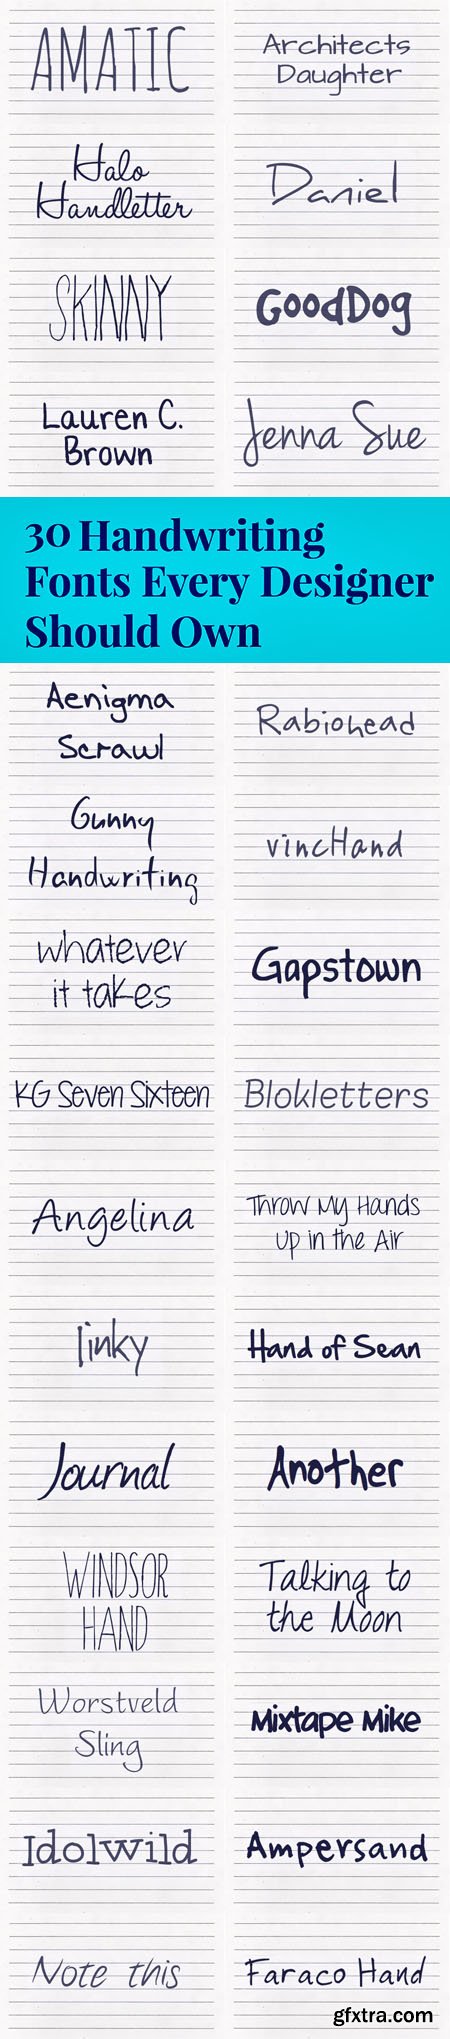 AMATIC
Architects
Daughter
Halo
Handletter
Daniel
SKINNY
GoodDog
Lauren C.
Brown
Jenna Sue
30 Handwriting
Fonts Every Designer
Should Own
Aenigma
Scrawl
Rabiohead
Gunny
Handwriting
vincHand
whatever
it takes
Gapstown
KG Seven Sixteen
Blokletters
Angelina
Throw My Hands
Up in the Air
Jinky
Hand of Sean
Journal
Another
WINDSOR
HAND
Talking to
the Moon
Worstveld
Sling
Mixtape Mike
Idolwild
Ampersand
Note this
Faraco Hand
gfxtra.com